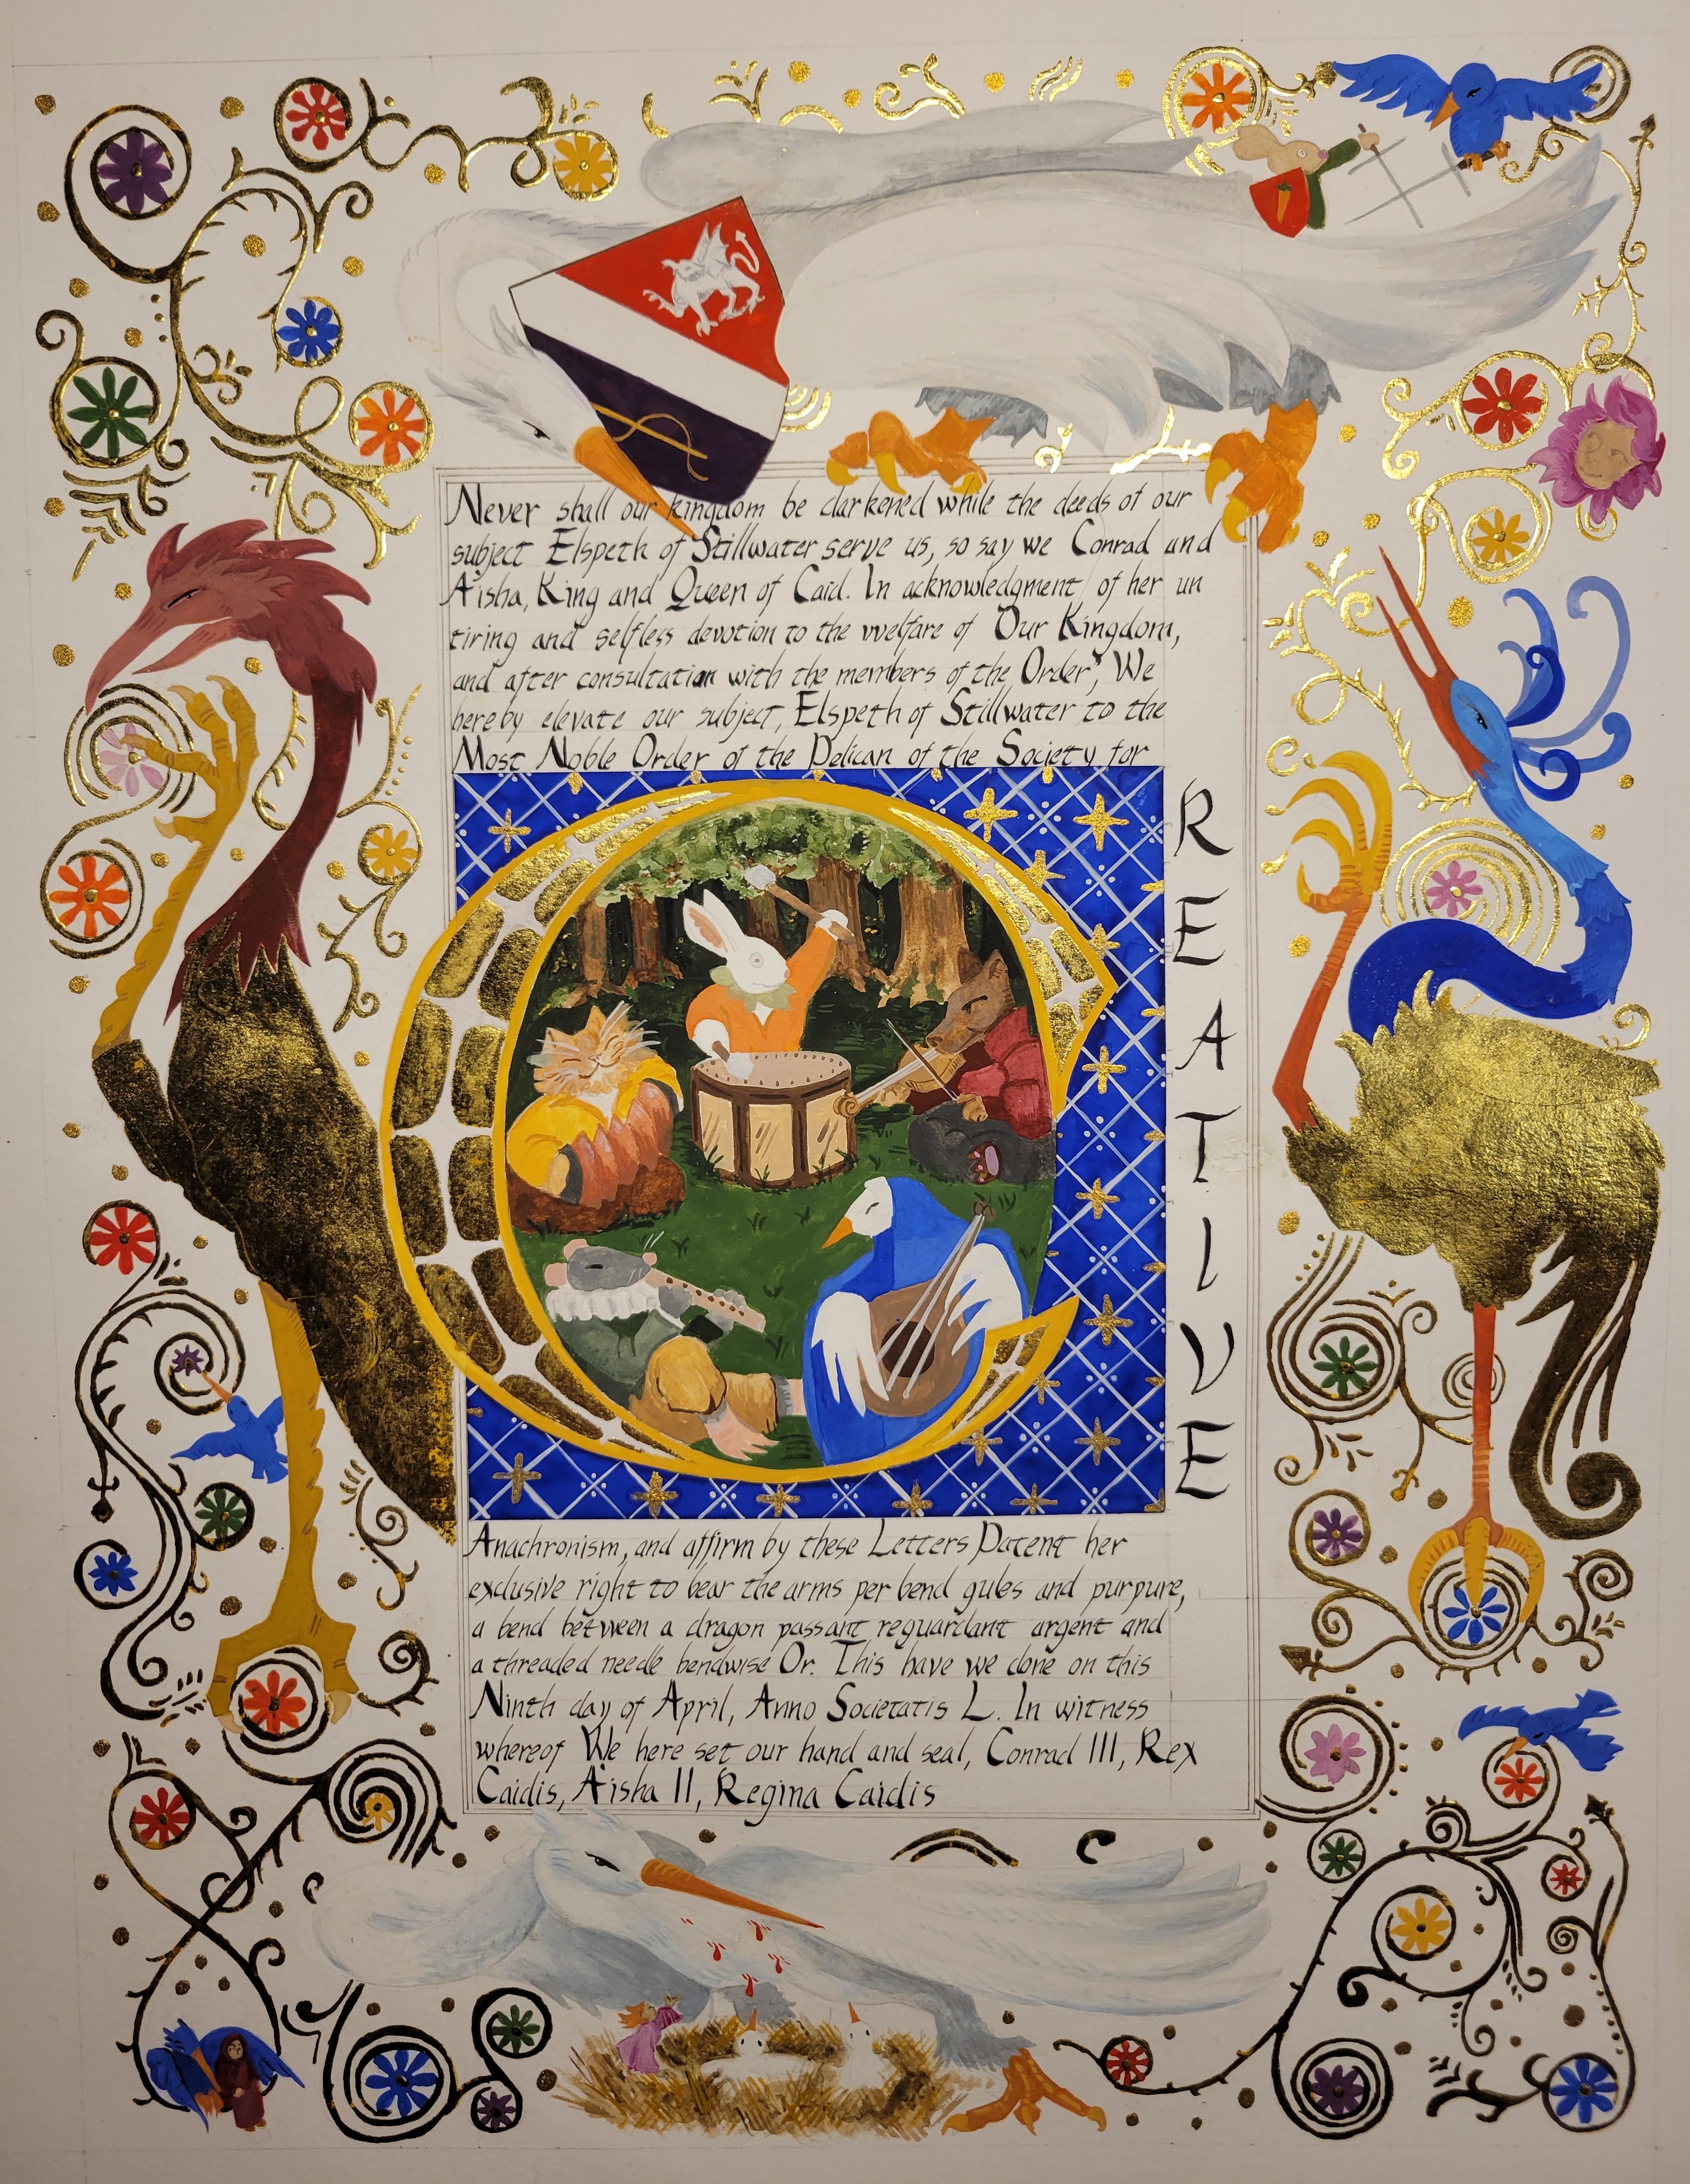 Never shall our kingdom be darkened while the deeds of our
subject Elspeth of Stillwater serve us, so say we Conrad and
A'isha, King and Queen of Caid. In acknowledgment of her un
tiring and selfless devotion to the welfare of Our Kingdom,
and after consultation with the members of the Order, We
hereby elevate our subject, Elspeth of Stillwater to the
Most Noble Order of the Pelican of the Society for
CREATIVE
Anachronism, and affirm by these Letters Patent her
exclusive right to bear the arms per bend gules and purpure,
a bend between a dragon passant reguardant argent and
a threaded needle bendwise Or. This have we done on this
Ninth day of April, Anno Societatis L. In witness
whereof We here set our hand and seal, Conrad III, Rex
Caidis, A'isha II, Regina Caidis